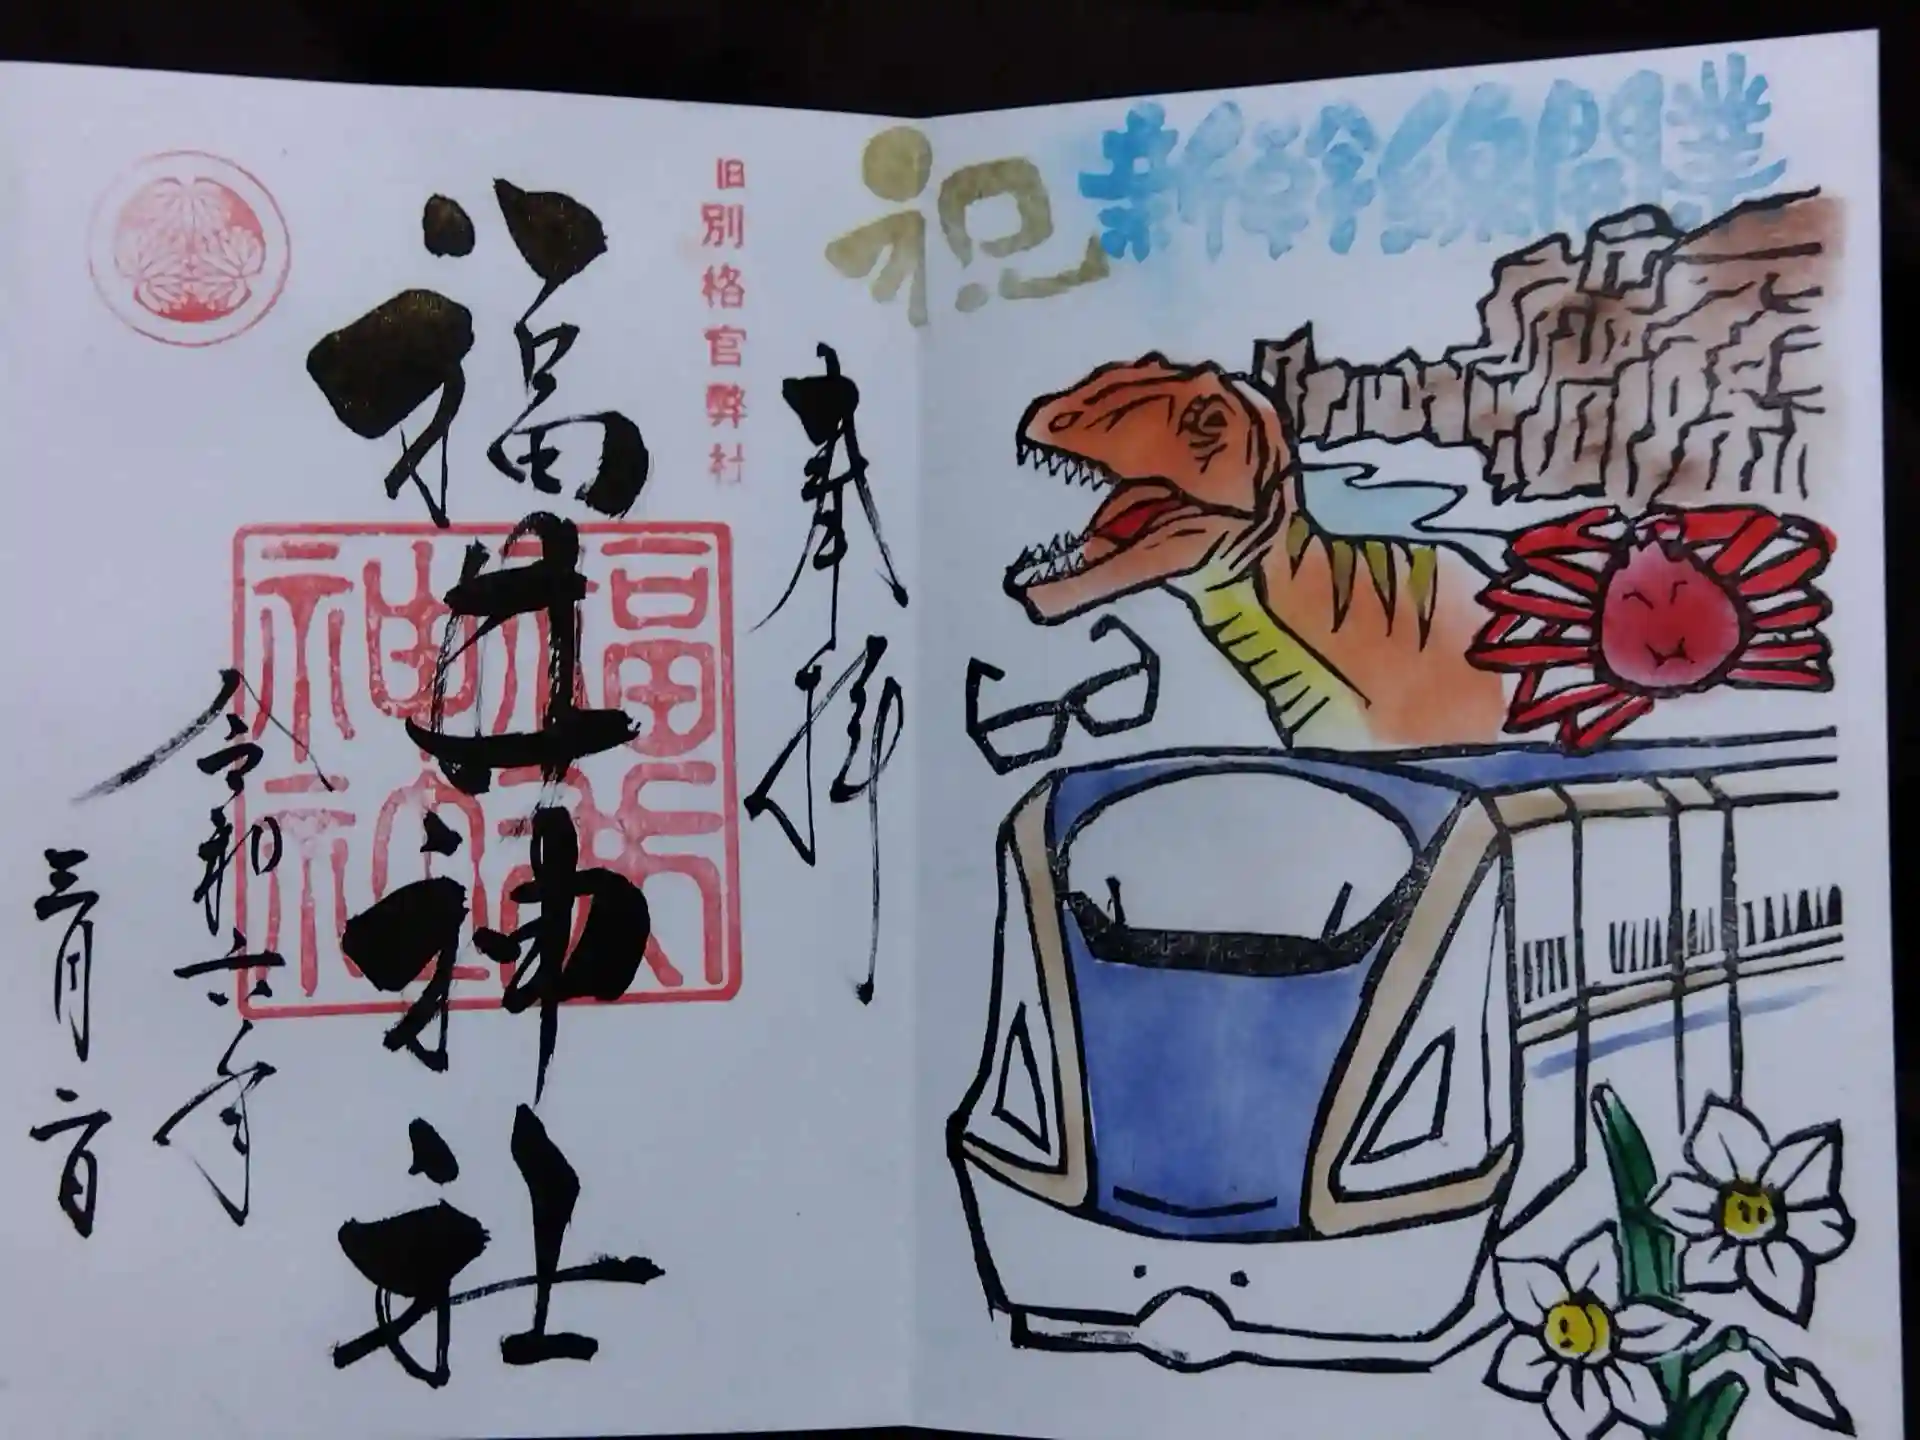 祝 新幹線開業
奉拝
旧別格官弊社
福井神社
福井神社
令和六年
三月二日